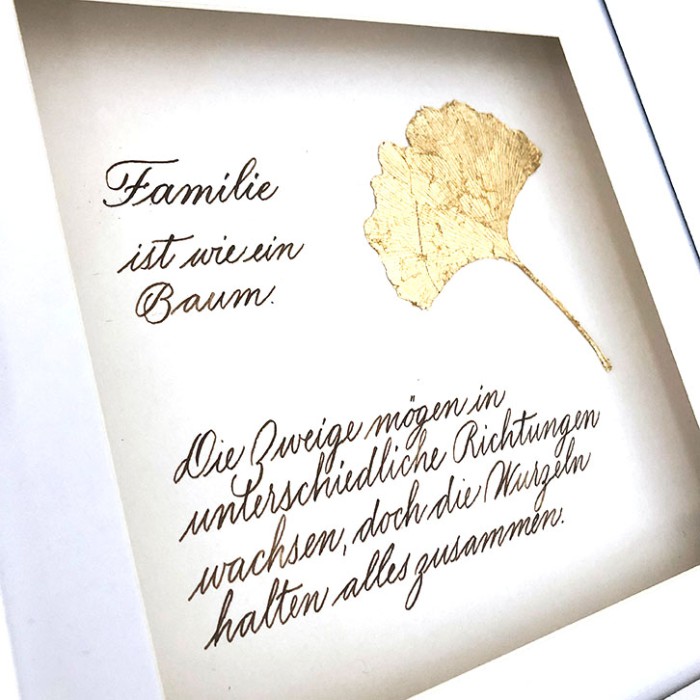 Familie
ist wie ein
Baum.
Die Zweige mögen in
unterschiedliche Richtungen
wachsen, doch die Wurzeln
halten alles zusammen.